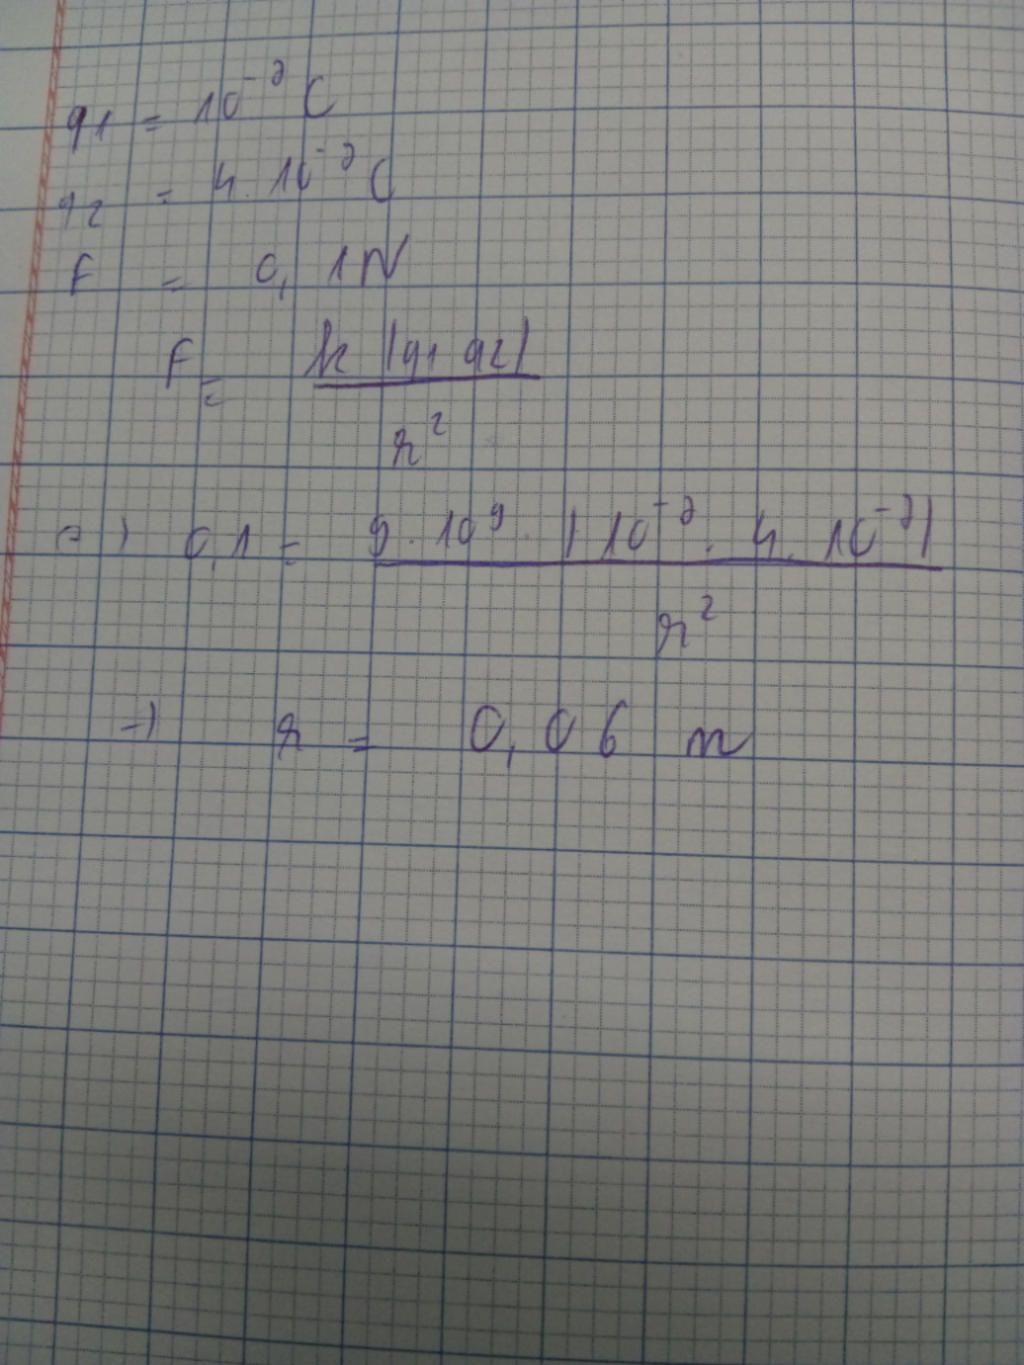 q1 = 10⁻⁷ C
q2 = 4.10⁻⁷ C
F = 0,1N
F = k |q1 q2| / r²
=) 0,1 = 9.10⁹. |10⁻⁷. 4.10⁻⁷| / r²
=) r = 0,06 m